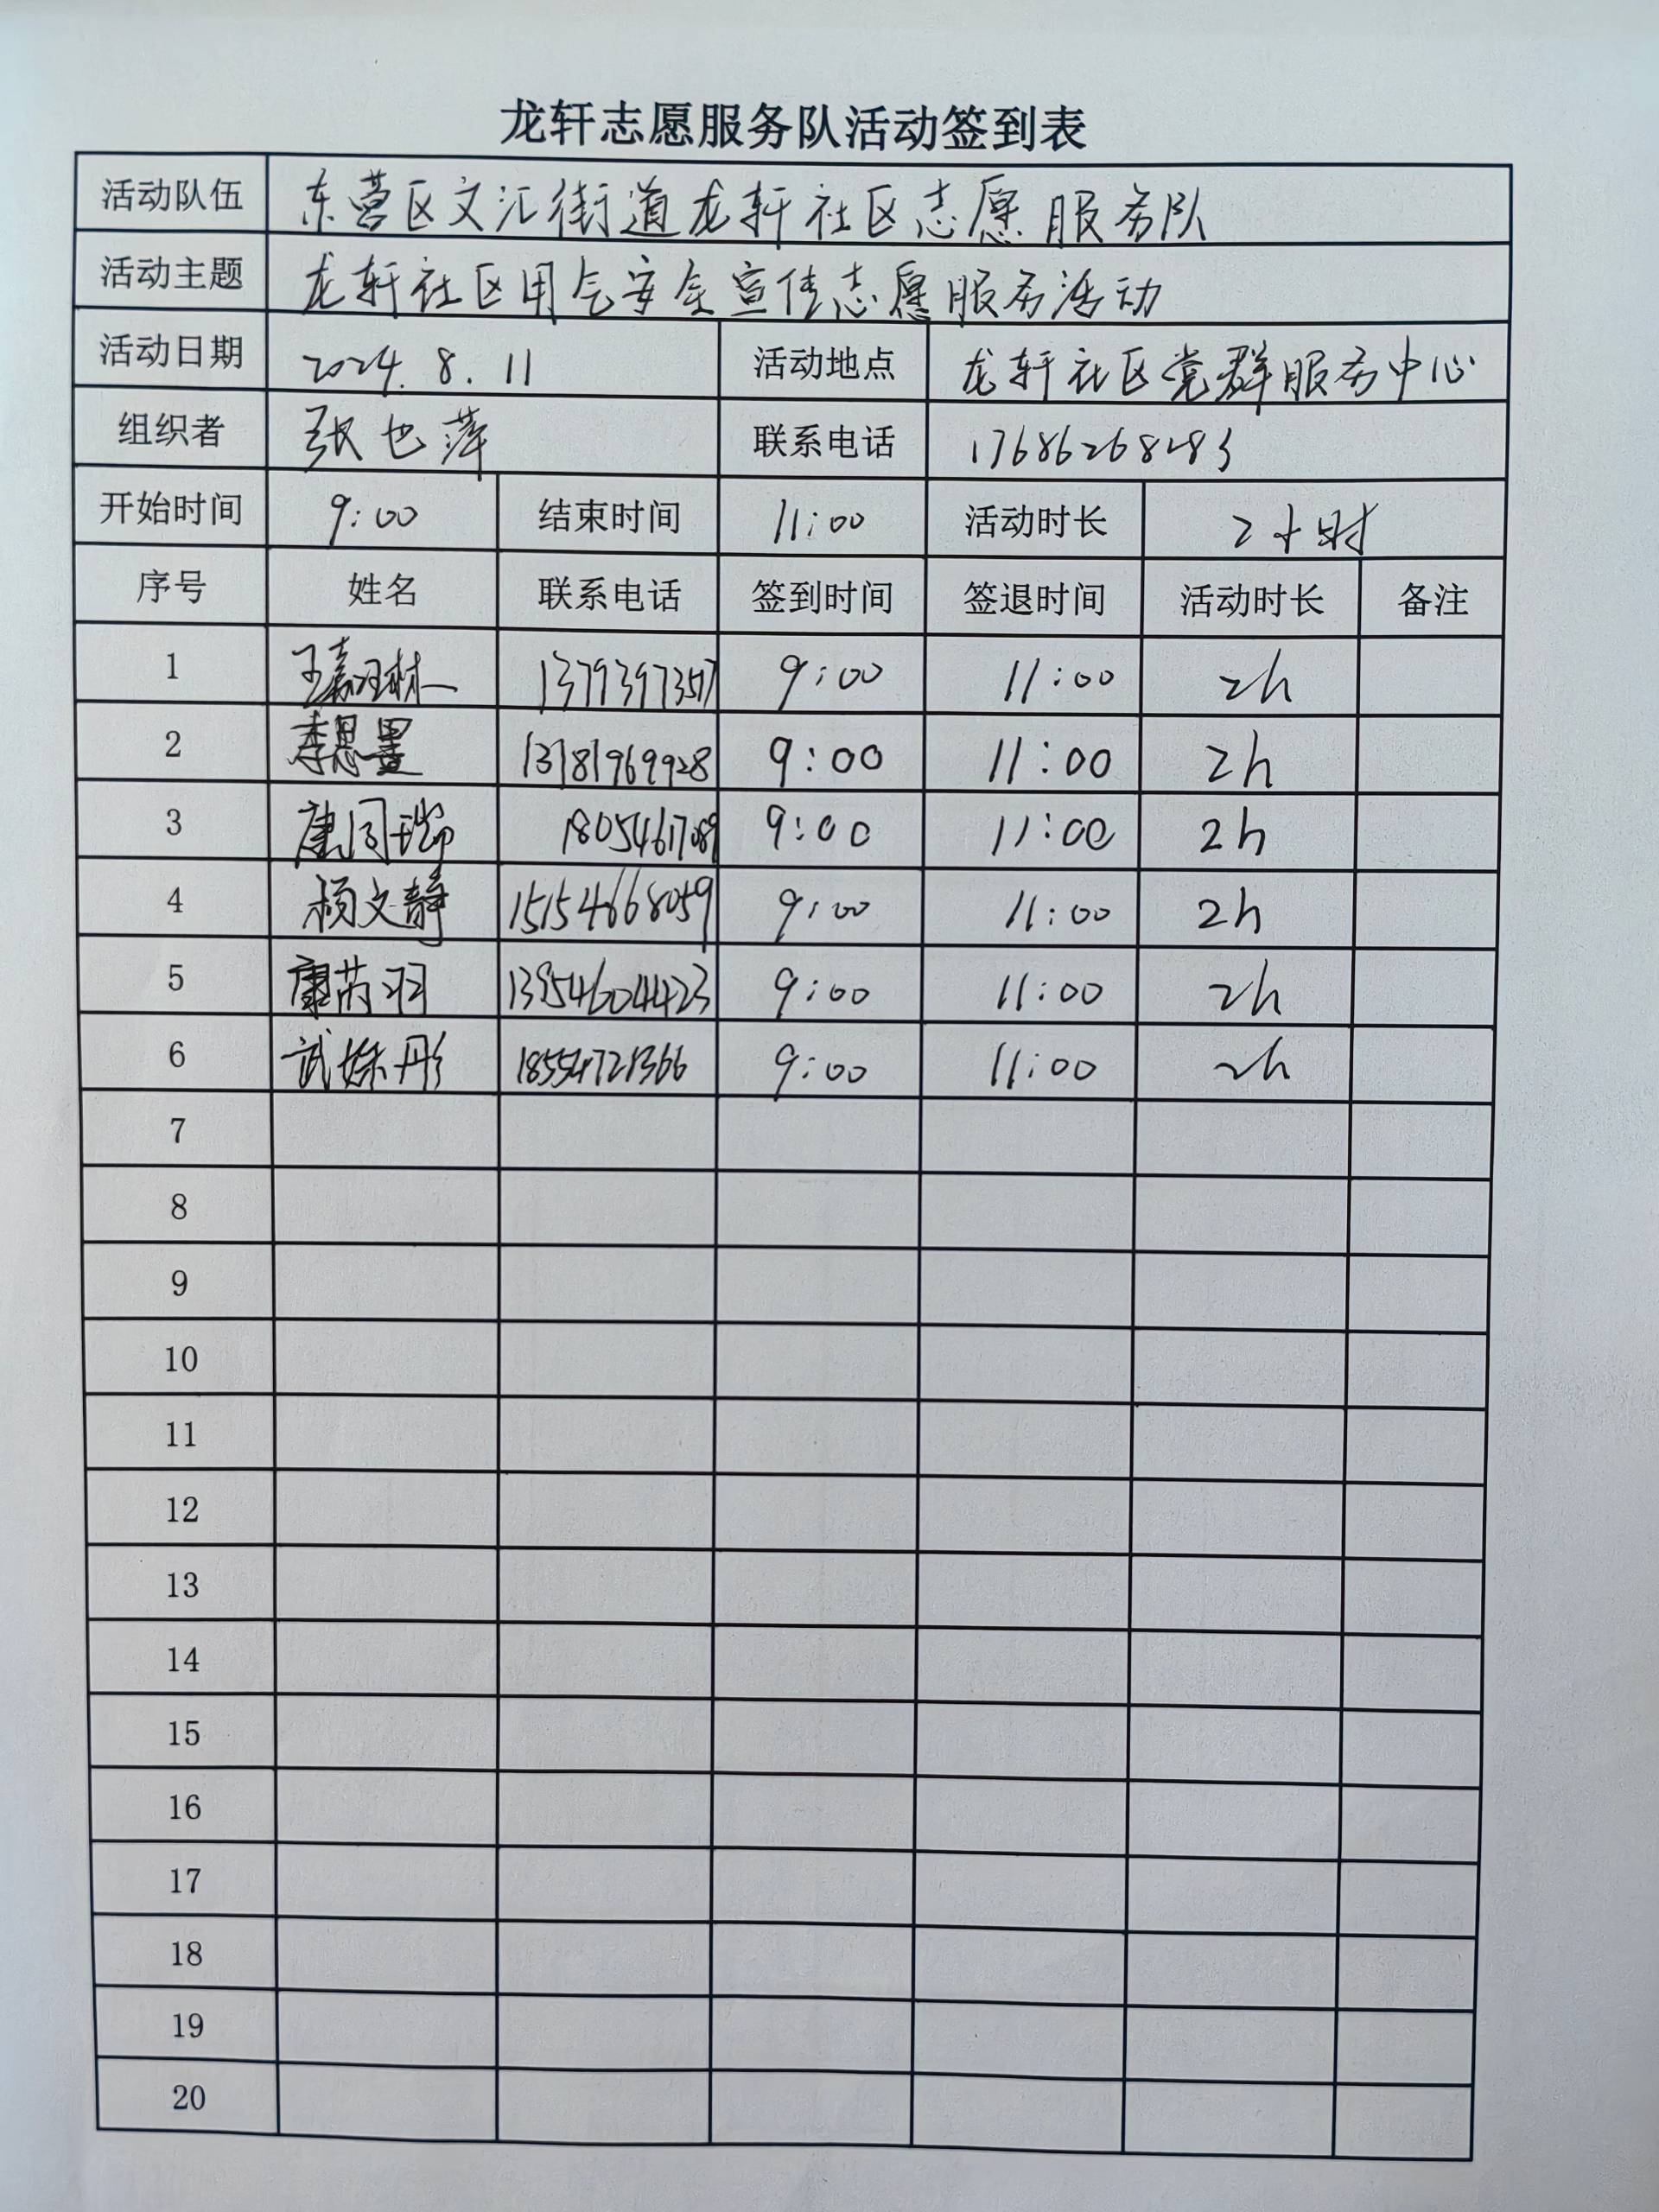 龙轩志愿服务队活动签到表
活动队伍 东营区文汇街道龙轩社区志愿服务队
活动主题 龙轩社区用气安全宣传志愿服务活动
活动日期 2024.8.11 活动地点 龙轩社区党群服务中心
组织者 张也萍 联系电话 17686268283
开始时间 9:00 结束时间 11:00 活动时长 2小时
序号 姓名 联系电话 签到时间 签退时间 活动时长 备注
1 9:00 11:00 2h
2 李思墨 13181969928 9:00 11:00 2h
3 唐同瑞 18054617089 9:00 11:00 2h
4 杨文静 15154668059 9:00 11:00 2h
5 康芮羽 13954604423 9:00 11:00 2h
6 武姝彤 18554721366 9:00 11:00 2h
7
8
9
10
11
12
13
14
15
16
17
18
19
20